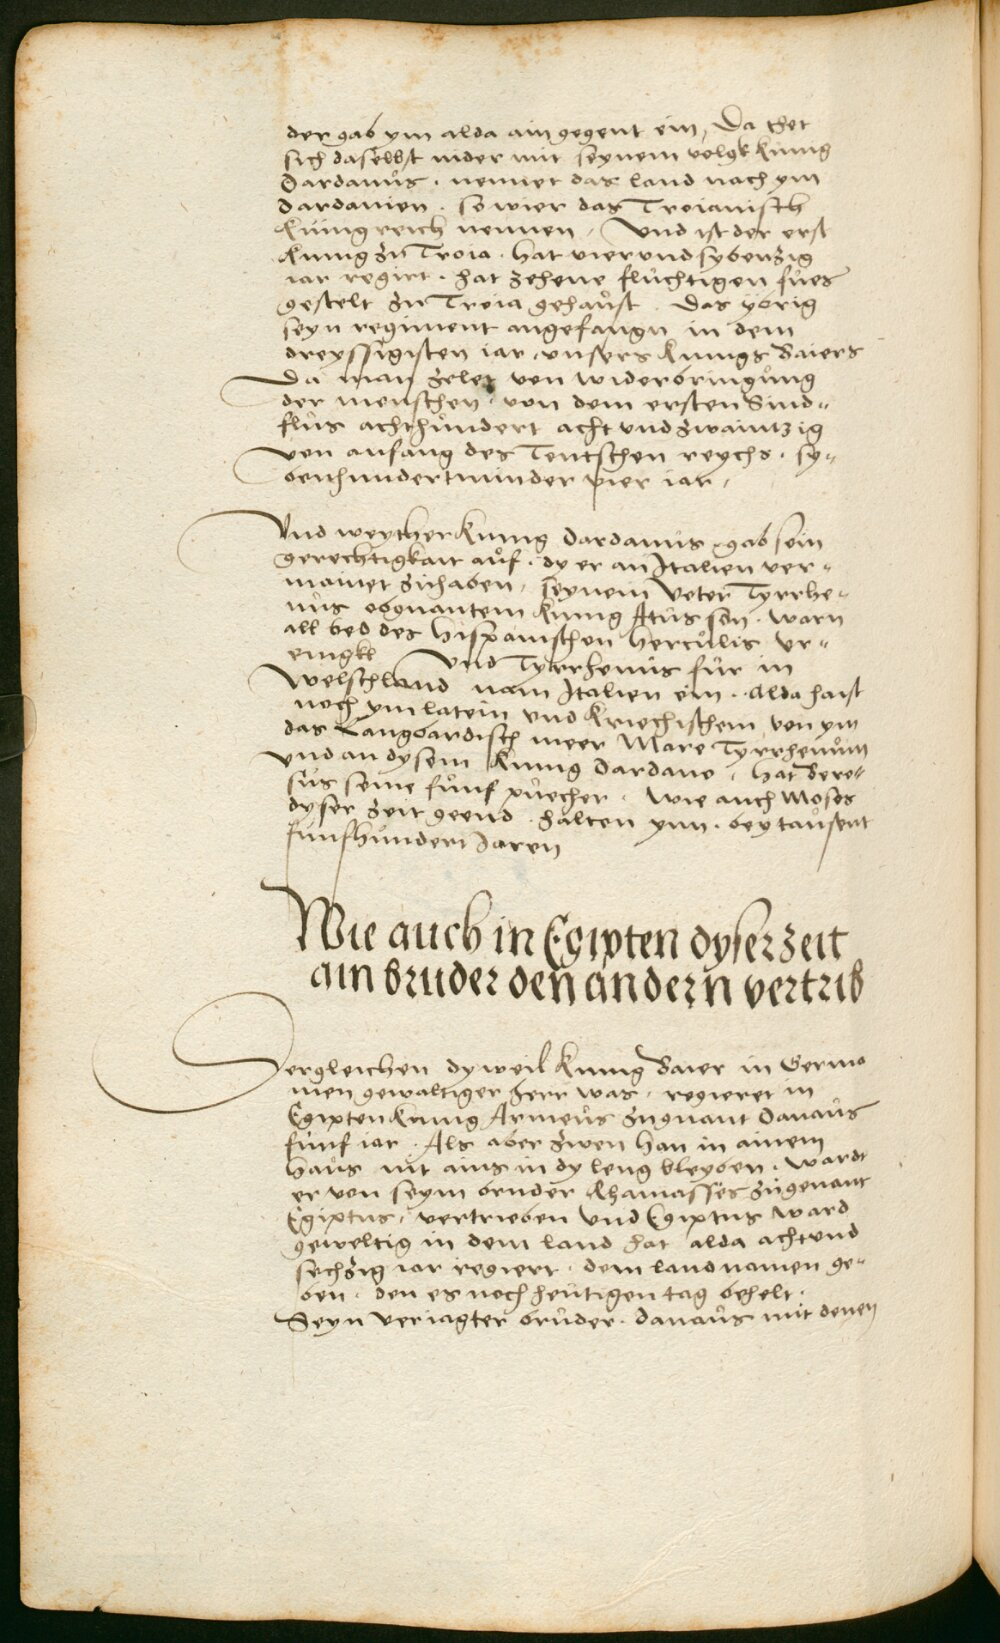 der gab ym alda ain gegent ein, Da thet
sich daselbst nider mit seynem volgk kunig
Dardanůs . nennet das land nach ym
Dardanien . so wier das Troianisch
kunigreich nennen, Und ist der erst
kunig zu Troia . hat vierundsybenzig
iar regirt . hat zehene fluchtigen fůes
gestelt zu Troia gehaůst . Das ybrig
seyn regiment angefangn in dem
dreyssigisten iar, unsers kunigs Baiers
Da man zelet von widerbringůng
der menschen, von dem ersten Sind=
flůs achthůndert acht und zwaintzig
von anfang des Teutschen reychs . sy=
benhundert minder vier iar,
Und weyther kunig Dardanus gab sein
gerechtigkait aůf . dy er an Italien ver=
mainet zuhaben, seynem Veter Tyrrhe=
nůs obgnantem kunig Atůs son . warn
all bed des Hispanischen Hercůlis ur=
enigkl Und Tyrrhenus fůr in
Welschland nam Italien ein . Alda haist
noch ym latein und kriechischem von ym
das Langbardisch meer Mare Tyrrhenům
Und an dysem kunig Dardano, hat Bero=
sůs seine fůnf půecher . Wie auch Moses
dyser zeit geend . halten ynn . bey taůsent
funfhůndert Jaren
Wie auch in Egipten dyser zeit
ain bruder den andern vertrib
Dergleichen dyweil kunig Baier in Germa
nien gewaltiger herr was, regieret in
Egipten kunig Armeůs zugnant Danaůs
funf iar . Als aber zwen han in ainem
haůs nit ains in dy leng bleyben . wardt
er von seym bruder Rhamasses zugenant
Egiptus, vertrieben Und Egiptus ward
geweltig in dem land hat alda achtund
sechzig iar regiert . dem land namen ge=
ben . den es noch heutigen tag behelt .
Seyn veriagter brůder . Danaůs mit denen